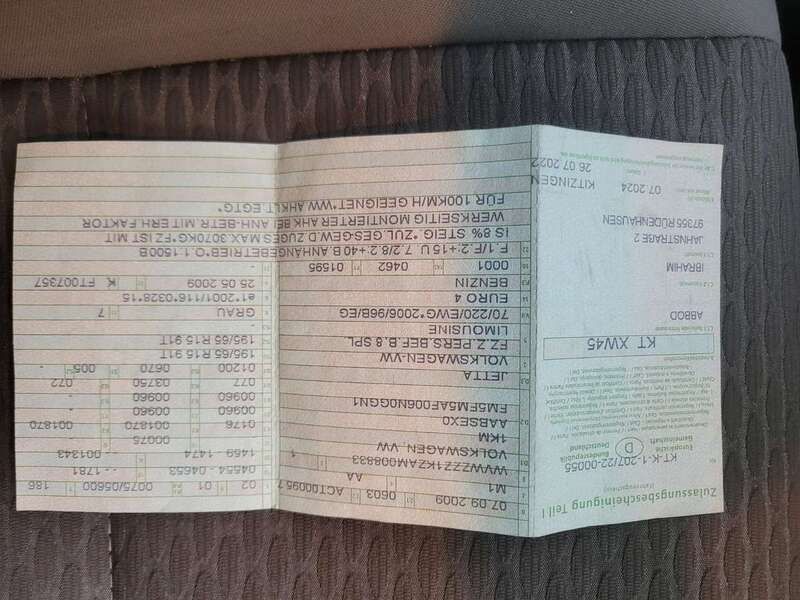 Zulassungsbescheinigung Teil I
(Fahrzeugschein)
Nr. KT-K-1-207/22-00055
Europäische
Gemeinschaft
D
Bundesrepublik
Deutschland
KT XW45
ABBOD
IBRAHIM
JAHNSTRAßE 2
97355 RÜDENHAUSEN
07 2024
KITZINGEN
26 07 2022
07.09.2009
0603
ACT00095 7
M1
AA
WVWZZZ1KZAM008833
1
VOLKSWAGEN, VW
1KM
AABSEX0
FM5FM5AF006N0GGN1
JETTA
VOLKSWAGEN-VW
FZ.Z.PERS.BEF.B.8 SPL
LIMOUSINE
70/220/EWG*2006/96B/EG
EURO 4
BENZIN
0001
0462
01595
F.1/F.2:+15 U. 7.2/8.2:+40 B.ANHÄNGEBETRIEB*O.1:1500 B
IS 8% STEIG.*ZUL.GES-GEW.D.ZUGES MAX.3070KG*FZ IST MIT
WERKSEITIG MONTIERTER AHK BEI ANH-BETR.MIT ERH.FAKTOR
FÜR 100KM/H GEEIGNET*WW.AHK LT.EGTG*
02
01
0075/05600
186
04554-04653
1781
1459- 1474
001343
00075
0176
001870
001870
00960
00960
00960
00960
077
03750
072
01200
0670
005
195/65 R15 91T
195/65 R15 91T
GRAU
7
e1*2001/116*0328*15
25.05.2009
K
FT007357